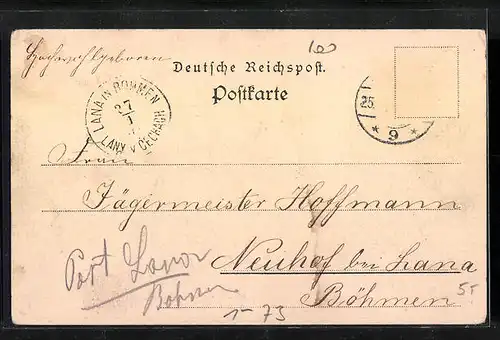 Hochwohlgeboren
100
Deutsche Reichspost.
Postkarte
LANA IN BÖHMEN
27
1
LANY V ČECHÁCH
25
* 9 *
Frau
Jägermeister Hoffmann
Neuhof bei Lana
Böhmen
Post Lana
Böhmen
1-73